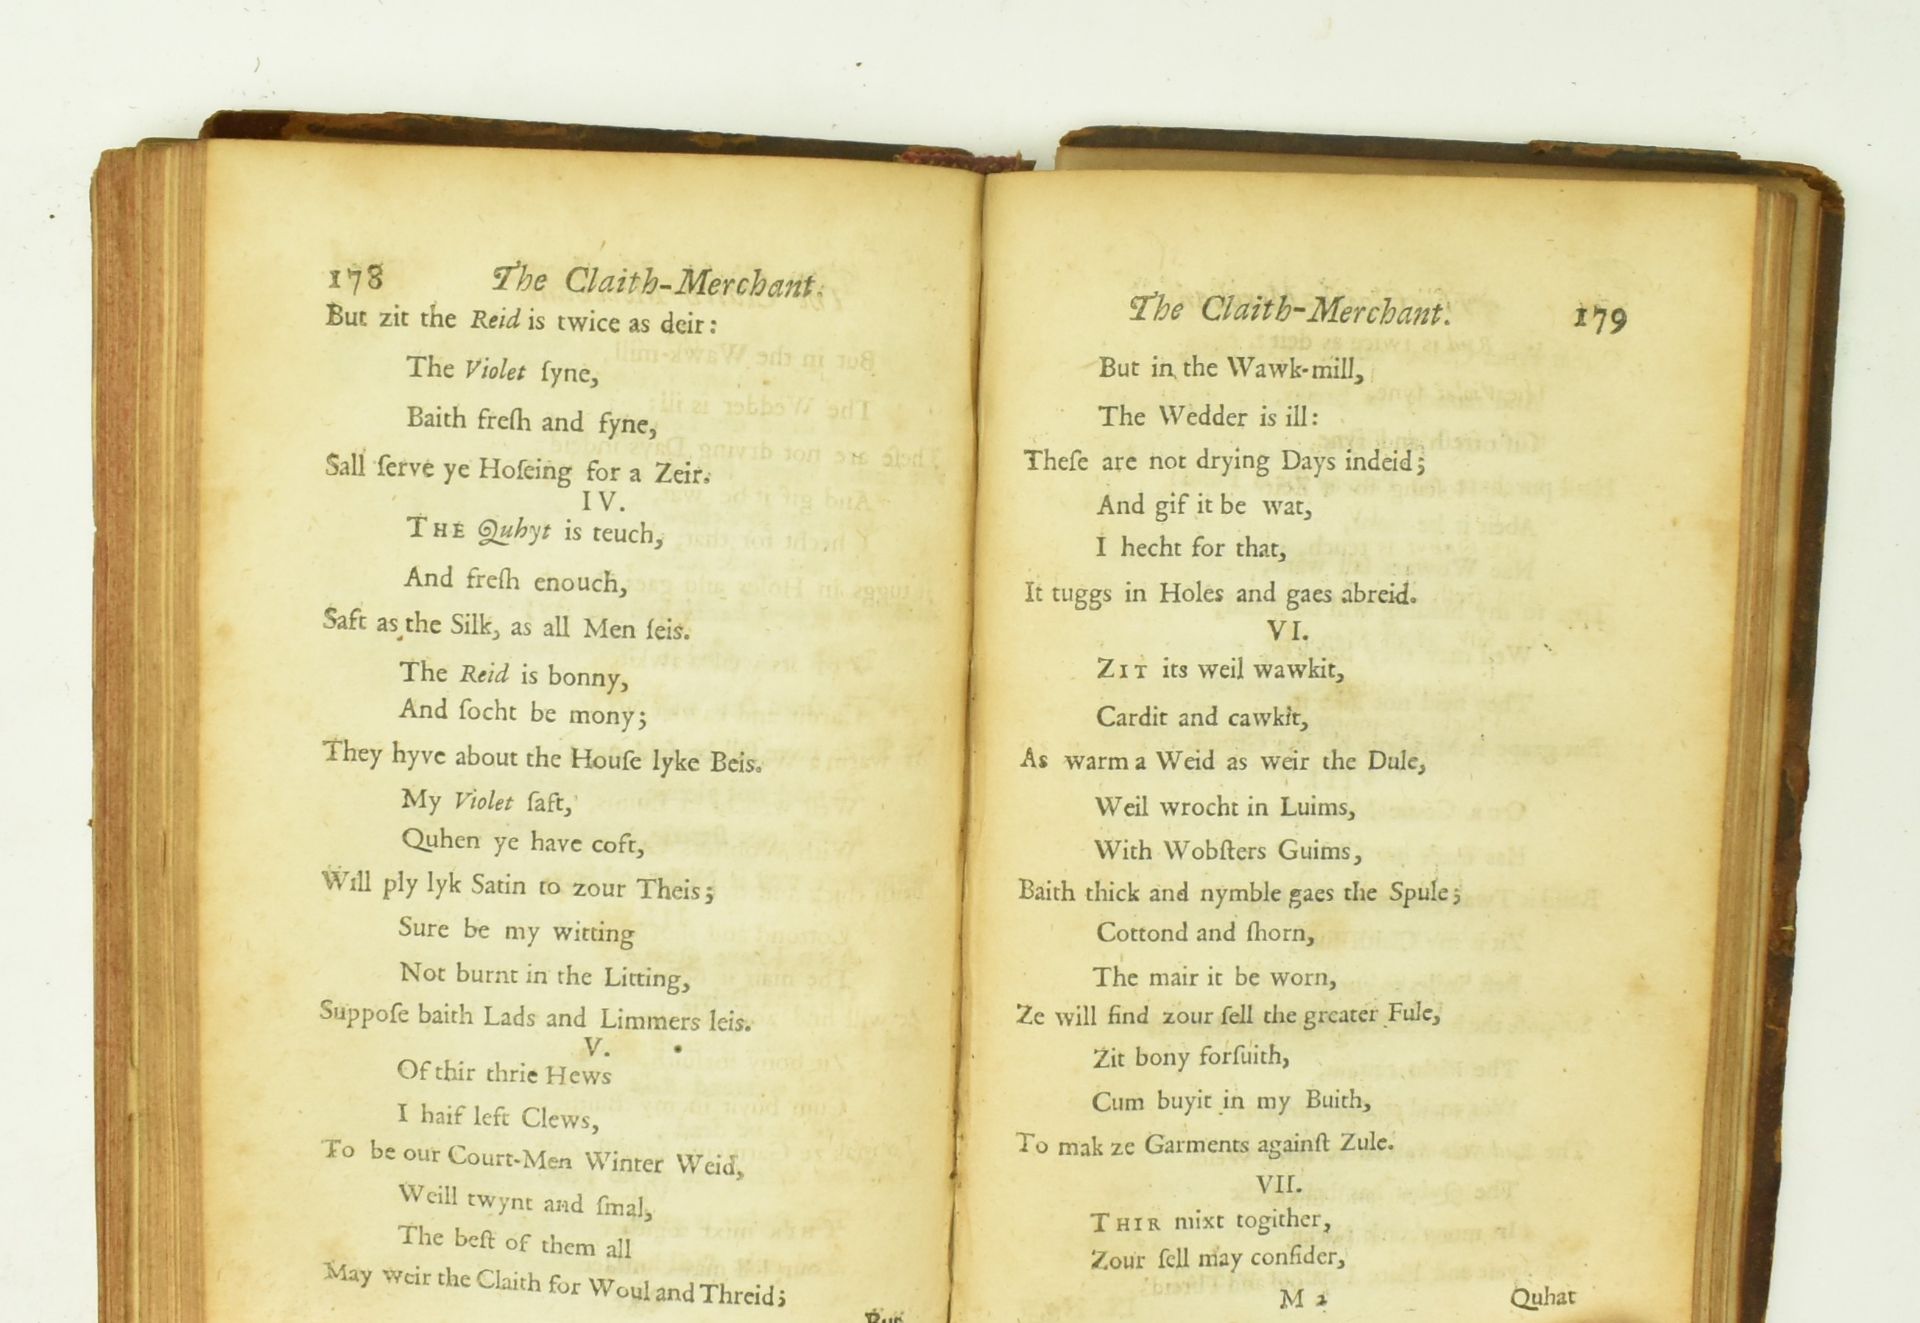 178 The Claith-Merchant.
But zit the Reid is twice as deir:
The Violet ſyne,
Baith freſh and fyne,
Sall ſerve ye Hoſeing for a Zeir.
IV.
THE Quhyt is teuch,
And freſh enouch,
Saft as the Silk, as all Men ſeis.
The Reid is bonny,
And ſocht be mony;
They hyve about the Houſe lyke Beis.
My Violet ſaft,
Quhen ye have coft,
Will ply lyk Satin to zour Theis;
Sure be my witting
Not burnt in the Litting,
Suppoſe baith Lads and Limmers leis.
V.
Of thir thrie Hews
I haif left Clews,
To be our Court-Men Winter Weid,
Weill twynt and ſmal,
The beſt of them all
May weir the Claith for Woul and Threid;
But
The Claith-Merchant. 179
But in the Wawk-mill,
The Wedder is ill:
Theſe are not drying Days indeid;
And gif it be wat,
I hecht for that,
It tuggs in Holes and gaes abreid.
VI.
ZIT its weil wawkit,
Cardit and cawkit,
As warm a Weid as weir the Dule,
Weil wrocht in Luims,
With Wobſters Guims,
Baith thick and nymble gaes the Spule;
Cottond and ſhorn,
The mair it be worn,
Ze will find zour ſell the greater Fule,
Zit bony forſuith,
Cum buyit in my Buith,
To mak ze Garments againſt Zule.
VII.
THIR mixt togither,
Zour ſell may conſider,
M 2 Quhat